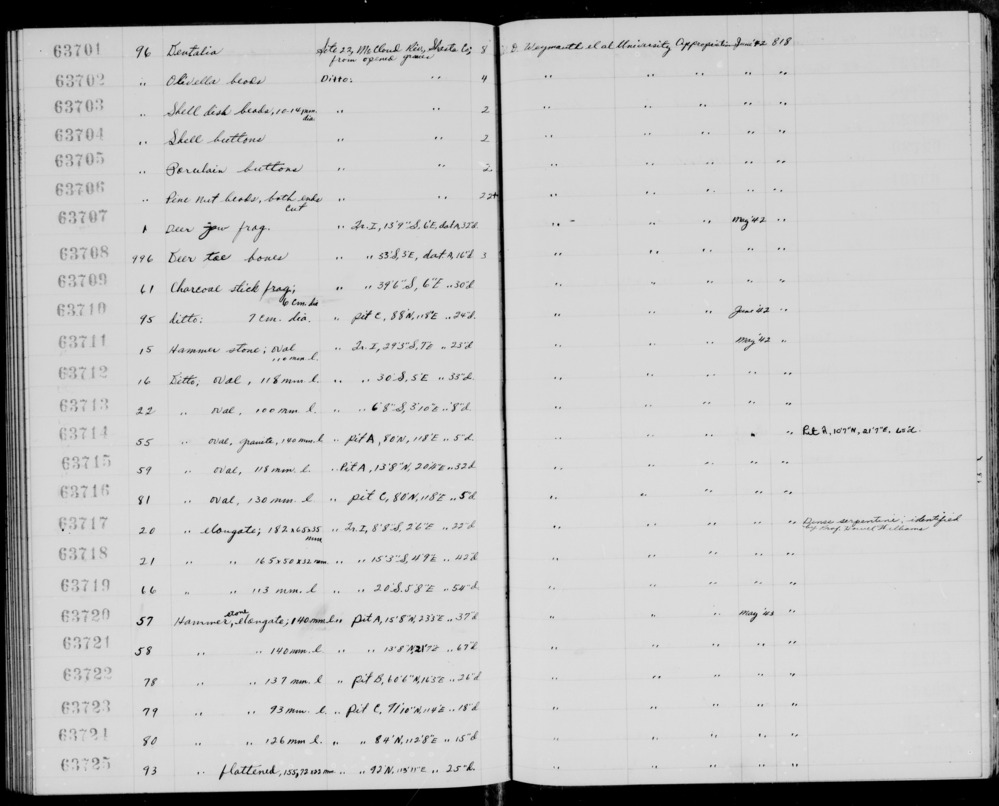 63701 96 Dentalia Site 22, McCloud Riv., Shasta Co; 8 D. Weymouth et al University Appropriation June '42 818
from opened graves
63702 " Olivella beads Ditto: " 4 " " " " "
63703 " Shell disk beads, 10-14 mm. " " 2 " " " " "
dia
63704 " Shell buttons " " 2 " " " " "
63705 " Porcelain buttons " " 2 " " " " "
63706 " Pine nut beads, both ends " " 22+ " " " " "
cut
63707 1 Deer jaw frag. " Tr. I, 13'9" S, 6'E, dat A, 33"d " " " May '42 "
63708 996 Deer toe bones " " 53'S, 5'E, dat A, 16"d 3 " " " " "
63709 61 Charcoal stick frag; " " 39'6" S, 6'E " 30"d " " " " "
6 cm. dia
63710 95 Ditto: 7 cm. dia. " pit C, 88'N, 118'E " 24"d " " " June '42 "
63711 15 Hammer stone; oval " Tr. I, 29'3"S, 7'E " 23"d " " " May '42 "
110 mm. l.
63712 16 Ditto; oval, 118 mm. l. " " 30'S, 5'E " 35"d " " " " "
63713 22 " oval, 100 mm. l. " " 6'8"S, 3'10"E " 8"d " " " " "
63714 55 " oval, granite, 140 mm. l " Pit A, 80'N, 118'E " 5"d " " " " " Pit A, 10'7"N, 21'7"E, 65"d.
63715 59 " oval, 118 mm. l. " Pit A, 13'8"N, " 32"d " " " " "
63716 81 " oval, 130 mm. l " pit C, 80'N, 118'E " 5"d " " " " "
63717 20 " elongate; 182x65x35 " Tr. I, 8'8"S, 2'6"E " 22"d " " " " " Dense serpentine; identified
mm by Prof. Howel Williams
63718 21 " " 165x50x32 mm. " " 15'3"S, 4'9"E " 42"d " " " " "
63719 66 " " 113 mm. l. " " 20'S, 5'8"E " 54"d " " " " "
63720 57 Hammer stone, elongate; 140 mm l. " pit A, 15'8"N, 23'3"E " 37"d " " " May '43 "
63721 58 " " 140 mm. l " " 13'8"N, 21'7"E " 67"d " " " " "
63722 78 " " 137 mm. l " pit B, 60'6"N, 16'3"E " 26"d " " " " "
63723 79 " " 93 mm. l. " pit C, 71'10"N, 114'E " 18"d " " " " "
63724 80 " " 126 mm l. " " 84'N, 112'8"E " 15"d " " " " "
63725 93 " flattened, mm " " 92'N, 115'11"E " 25"d. " " " " "